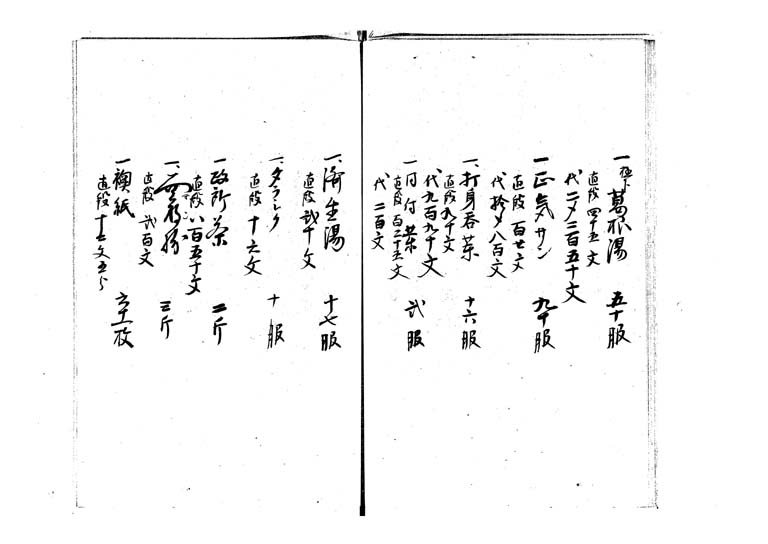 一極上 葛根湯 五十服
直段 四十五文
代二〆三百五十文
一正気サン 九十服
直段 百廿文
代拾〆八百文
一打身呑薬 十六服
直段九十文
代九百九十文
一同付薬 弐服
直段百二十五文
代 二百文
一済生湯 十七服
直段 弐十文
一タラレク 十服
直段 十六文
一政所茶 二斤
直段 八百五十文
一 三斤
直段 弐百文
一襖紙 枚
直段 十六文五分